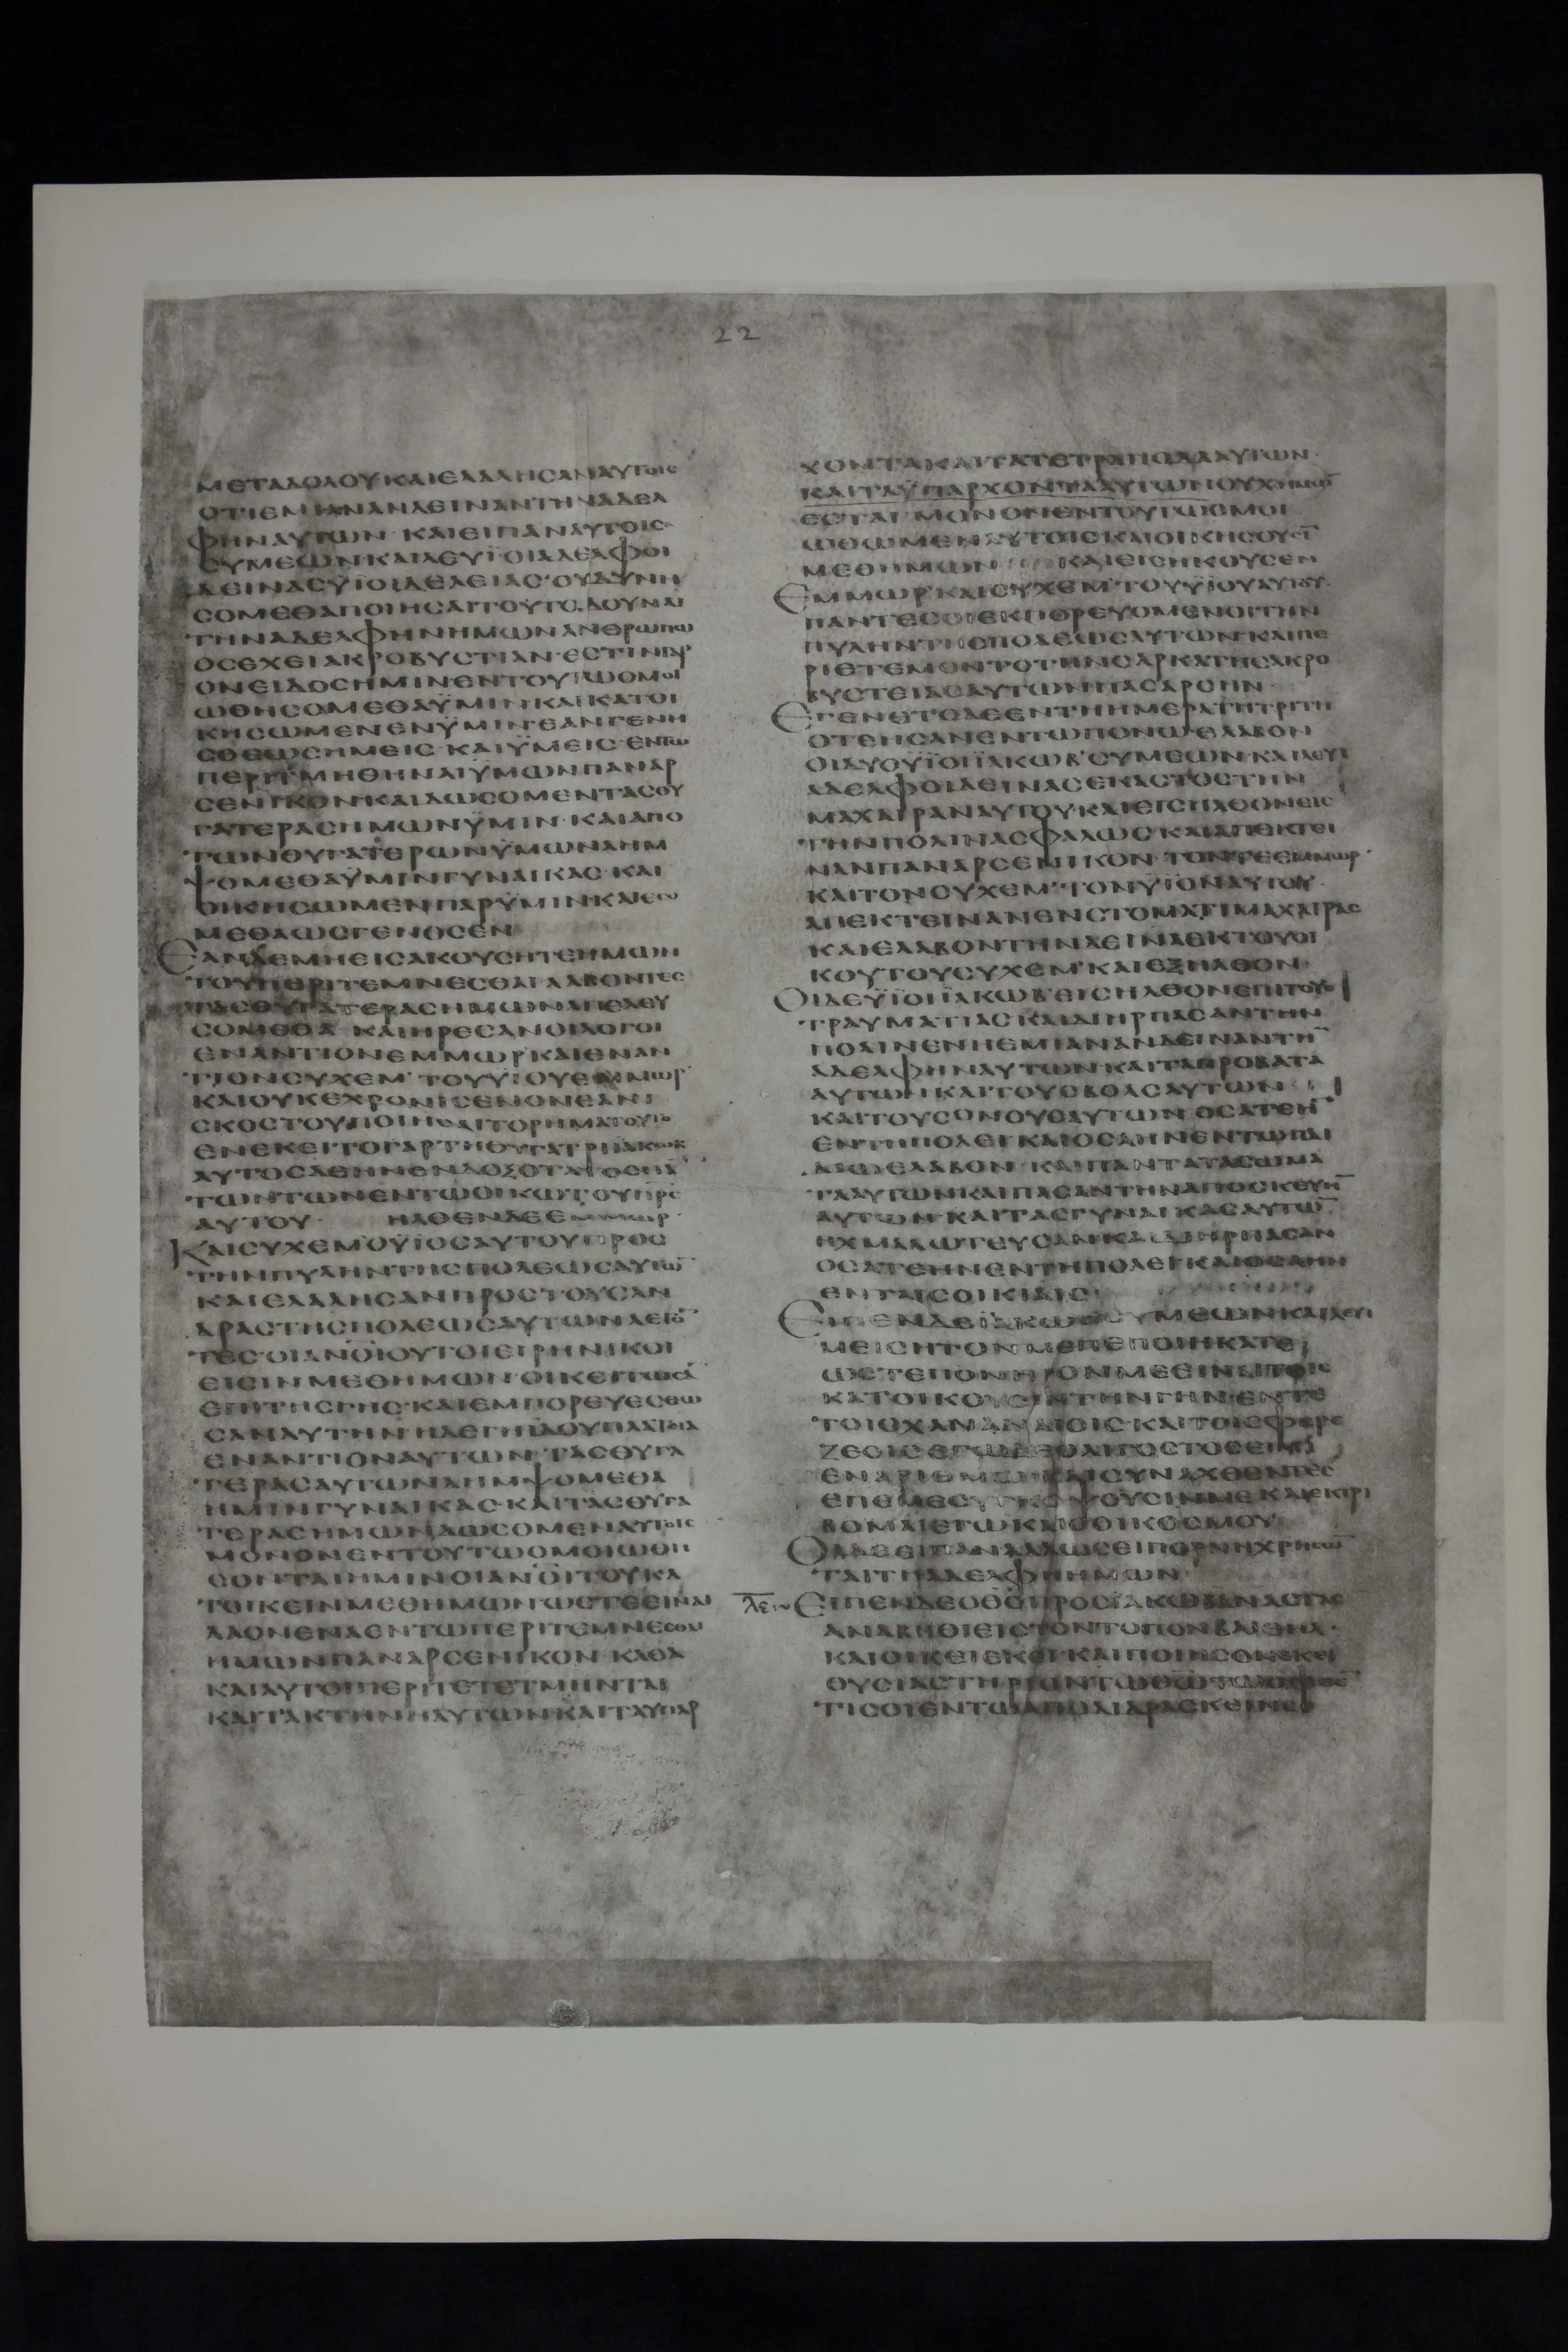 22
ΜΕΤΑΔΟΛΟΥΚΑΙΕΛΑΛΗϹΑΝΑΥΤΟΙϹ
ΟΤΙΕΜΙΑΝΑΝΔΕΙΝΑΝΤΗΝΑΔΕΛ
ΦΗΝΑΥΤΩΝ·ΚΑΙΕΙΠΑΝΑΥΤΟΙϹ
ϹΥΜΕΩΝΚΑΙΛΕΥΪ·ΟΙΑΔΕΛΦΟΙ
ΔΕΙΝΑϹΫΙΟΙΔΕΛΕΙΑϹ·ΟΥΔΥΝΗ
ϹΟΜΕΘΑΠΟΙΗϹΑΙΤΟΥΤΟ,ΔΟΥΝΑΙ
ΤΗΝΑΔΕΛΦΗΝΗΜΩΝΑΝΘΡΩΠΩ
ΟϹΕΧΕΙΑΚΡΟΒΥϹΤΙΑΝ·ΕϹΤΙΝΓΑΡ
ΟΝΕΙΔΟϹΗΜΙΝΕΝΤΟΥΤΩΟΜΟΙ
ΩΘΗϹΟΜΕΘΑΫΜΙΝΚΑΙΚΑΤΟΙ
ΚΗϹΩΜΕΝΕΝΫΜΙΝΕΑΝΓΕΝΗ
ϹΘΕΩϹΗΜΕΙϹ·ΚΑΙΫΜΕΙϹ·ΕΝΤΩ
ΠΕΡΙΤΜΗΘΗΝΑΙΫΜΩΝΠΑΝΑΡ
ϹΕΝΙΚΟΝ·ΚΑΙΔΩϹΟΜΕΝΤΑϹΘΥ
ΓΑΤΕΡΑϹΗΜΩΝΫΜΙΝ·ΚΑΙΑΠΟ
ΤΩΝΘΥΓΑΤΕΡΩΝΫΜΩΝΛΗΜ
ΨΟΜΕΘΑΫΜΙΝΓΥΝΑΙΚΑϹ·ΚΑΙ
ΟΙΚΗϹΩΜΕΝΠΑΡΫΜΙΝΚΑΙΕϹΩ
ΜΕΘΑΩϹΓΕΝΟϹΕΝ
ΕΑΝΔΕΜΗΕΙϹΑΚΟΥϹΗΤΕΗΜΩΝ
ΤΟΥΠΕΡΙΤΕΜΝΕϹΘΑΙ·ΛΑΒΟΝΤΕϹ
ΤΑϹΘΥΓΑΤΕΡΑϹΗΜΩΝΑΠΕΛΕΥ
ϹΟΜΕΘΑ·ΚΑΙΗΡΕϹΑΝΟΙΛΟΓΟΙ
ΕΝΑΝΤΙΟΝΕΜΜΩΡ'ΚΑΙΕΝΑΝ
ΤΙΟΝϹΥΧΕΜ'ΤΟΥΫΙΟΥΕΜΜΩΡ'
ΚΑΙΟΥΚΕΧΡΟΝΙϹΕΝΟΝΕΑΝΙ
ϹΚΟϹΤΟΥΠΟΙΗϹΑΙΤΟΡΗΜΑΤΟΥΤΟ
ΕΝΕΚΕΙΤΟΓΑΡΤΗΘΥΓΑΤΡΙΪΑΚΩΒ
ΑΥΤΟϹΔΕΗΝΕΝΔΟΞΟΤΑΤΟϹΠΑ̅
ΤΩΝΤΩΝΕΝΤΩΟΙΚΩΤΟΥΠΡϹ
ΑΥΤΟΥ· ΗΛΘΕΝΔΕΕΜΜΩΡ·
ΚΑΙϹΥΧΕΜ'ΟΫΙΟϹΑΥΤΟΥΠΡΟϹ
ΤΗΝΠΥΛΗΝΤΗϹΠΟΛΕΩϹΑΥΤΩ̅
ΚΑΙΕΛΑΛΗϹΑΝΠΡΟϹΤΟΥϹΑΝ
ΔΡΑϹΤΗϹΠΟΛΕΩϹΑΥΤΩΝΛΕΓΟ̅
ΤΕϹ·ΟΙΑΝΟΙΟΥΤΟΙΕΙΡΗΝΙΚΟΙ
ΕΙϹΙΝΜΕΘΗΜΩΝ·ΟΙΚΕΙΤΩϹΑ̅
ΕΠΙΤΗϹΓΗϹ·ΚΑΙΕΜΠΟΡΕΥΕϹΘΩ
ϹΑΝΑΥΤΗΝ·ΗΔΕΓΗΪΔΟΥΠΛΑΤΕΙΑ
ΕΝΑΝΤΙΟΝΑΥΤΩΝ·ΤΑϹΘΥΓΑ
ΤΕΡΑϹΑΥΤΩΝΛΗΜΨΟΜΕΘΑ
ΗΜΙΝΓΥΝΑΙΚΑϹ·ΚΑΙΤΑϹΘΥΓΑ
ΤΕΡΑϹΗΜΩΝΔΩϹΟΜΕΝΑΥΤΟΙϹ
ΜΟΝΟΝΕΝΤΟΥΤΩΟΜΟΙΩΘΗ
ϹΟΝΤΑΙΗΜΙΝΟΙΑΝΟΙΤΟΥΚΑ
ΤΟΙΚΕΙΝΜΕΘΗΜΩΝΩϹΤΕΕΙΝΑΙ
ΛΑΟΝΕΝΑΕΝΤΩΠΕΡΙΤΕΜΝΕϹΘΑΙ
ΗΜΩΝΠΑΝΑΡϹΕΝΙΚΟΝ·ΚΑΘΑ
ΚΑΙΑΥΤΟΙΠΕΡΙΤΕΤΕΤΜΗΝΤΑΙ
ΚΑΙΤΑΚΤΗΝΗΑΥΤΩΝΚΑΙΤΑΥΠΑΡ
ΧΟΝΤΑΚΑΙΤΑΤΕΤΡΑΠΟΔΑΑΥΤΩΝ·
ΚΑΙΤΑΫΠΑΡΧΟΝΤΑΑΥΤΩΝΟΥΧΗΜΩ̅
ΕϹΤΑΙ·ΜΟΝΟΝΕΝΤΟΥΤΩΟΜΟΙ
ΩΘΩΜΕΝΑΥΤΟΙϹΚΑΙΟΙΚΗϹΟΥϹΙ̅
ΜΕΘΗΜΩΝ ΚΑΙΕΙϹΗΚΟΥϹΕΝ
ΕΜΜΩΡ'ΚΑΙϹΥΧΕΜ'ΤΟΥΫΙΟΥΑΥΤΟΥ·
ΠΑΝΤΕϹΟΙΕΚΠΟΡΕΥΟΜΕΝΟΙΤΗΝ
ΠΥΛΗΝΤΗϹΠΟΛΕΩϹΑΥΤΩΝ·ΚΑΙΠΕ
ΡΙΕΤΕΜΟΝΤΟΤΗΝϹΑΡΚΑΤΗϹΑΚΡΟ
ΒΥϹΤΕΙΑϹΑΥΤΩΝΠΑϹΑΡϹΗΝ·
ΕΓΕΝΕΤΟΔΕΕΝΤΗΗΜΕΡΑΤΗΤΡΙΤΗ
ΟΤΕΗϹΑΝΕΝΤΩΠΟΝΩΕΛΑΒΟΝ
ΟΙΔΥΟΫΙΟΙΪΑΚΩΒ'ϹΥΜΕΩΝ·ΚΑΙΛΕΥΙ
ΑΔΕΛΦΟΙΔΕΙΝΑϹΕΚΑϹΤΟϹΤΗΝ
ΜΑΧΑΙΡΑΝΑΥΤΟΥ·ΚΑΙΕΙϹΗΛΘΟΝΕΙϹ
ΤΗΝΠΟΛΙΝΑϹΦΑΛΩϹΚΑΙΑΠΕΚΤΕΙ
ΝΑΝΠΑΝΑΡϹΕΝΙΚΟΝ·ΤΟΝΤΕΕΜΜΩΡ'
ΚΑΙΤΟΝϹΥΧΕΜ'ΤΟΝΫΙΟΝΑΥΤΟΥ·
ΑΠΕΚΤΕΙΝΑΝΕΝϹΤΟΜΑΤΙΜΑΧΑΙΡΑϹ
ΚΑΙΕΛΑΒΟΝΤΗΝΔΕΙΝΑΕΚΤΟΥΟΙ
ΚΟΥΤΟΥϹΥΧΕΜ'ΚΑΙΕΞΗΛΘΟΝ·
ΟΙΔΕΫΙΟΙΪΑΚΩΒ'ΕΙϹΗΛΘΟΝΕΠΙΤΟΥϹ
ΤΡΑΥΜΑΤΙΑϹΚΑΙΔΙΗΡΠΑϹΑΝΤΗΝ
ΠΟΛΙΝΕΝΗΕΜΙΑΝΑΝΔΕΙΝΑΝΤΗ̅
ΑΔΕΛΦΗΝΑΥΤΩΝ·ΚΑΙΤΑΠΡΟΒΑΤΑ
ΑΥΤΩΝΚΑΙΤΟΥϹΒΟΑϹΑΥΤΩΝ
ΚΑΙΤΟΥϹΟΝΟΥϹΑΥΤΩΝ·ΟϹΑΤΕΗ̅
ΕΝΤΗΠΟΛΕΙΚΑΙΟϹΑΗΝΕΝΤΩΠΑΙ
ΔΙΩΕΛΑΒΟΝ·ΚΑΙΠΑΝΤΑΤΑϹΩΜΑ
ΤΑΑΥΤΩΝΚΑΙΠΑϹΑΝΤΗΝΑΠΟϹΚΕΥΗ̅
ΑΥΤΩΝ·ΚΑΙΤΑϹΓΥΝΑΙΚΑϹΑΥΤΩ̅
ΗΧΜΑΛΩΤΕΥϹΑΝΚΑΙΔΙΗΡΠΑϹΑΝ
ΟϹΑΤΕΗΝΕΝΤΗΠΟΛΕΙΚΑΙΟϹΑΗΝ
ΕΝΤΑΙϹΟΙΚΙΑΙϹ·
ΕΙΠΕΝΔΕΪΑΚΩΒ ϹΥΜΕΩΝΚΑΙΛΕΥΙ
ΜΕΙϹΗΤΟΝΜΕΠΕΠΟΙΗΚΑΤΕ
ΩϹΤΕΠΟΝΗΡΟΝΜΕΕΙΝΑΙΤΟΙϹ
ΚΑΤΟΙΚΟΥϹΙΝΤΗΝΓΗΝ·ΕΝΤΕ
ΤΟΙϹΧΑΝΑΝΑΙΟΙϹ·ΚΑΙΤΟΙϹΦΕΡΕ
ΖΕΟΙϹ
ΕΝΑΡΙΘΜΩΚΑΙϹΥΝΑΧΘΕΝΤΕϹ
ΕΠΕΜΕϹΥΓΚΟΨΟΥϹΙΝΜΕΚΑΙΕΚΤΡΙ
ΒΟΜΑΙΕΓΩΚΑΙΟΟΙΚΟϹΜΟΥ·
ΟΙΔΕΕΙΠΑΝΑΛΛΩϹΕΙΠΟΡΝΗΧΡΗϹΩ̅
ΤΑΙΤΗΑΔΕΛΦΗΗΜΩΝ·
λε ΕΙΠΕΝΔΕΟΘϹΠΡΟϹΪΑΚΩΒΑΝΑϹΤΑϹ
ΑΝΑΒΗΘΙΕΙϹΤΟΝΤΟΠΟΝΒΑΙΘΗΛ·
ΚΑΙΟΙΚΕΙΕΚΕΙ·ΚΑΙΠΟΙΗϹΟΝΕΚΕΙ
ΘΥϹΙΑϹΤΗΡΙΟΝΤΩΘΩΤΩΟΦΘΕ̅
ΤΙϹΟΙΕΝΤΩΑΠΟΔΙΔΡΑϹΚΕΙΝϹΕ